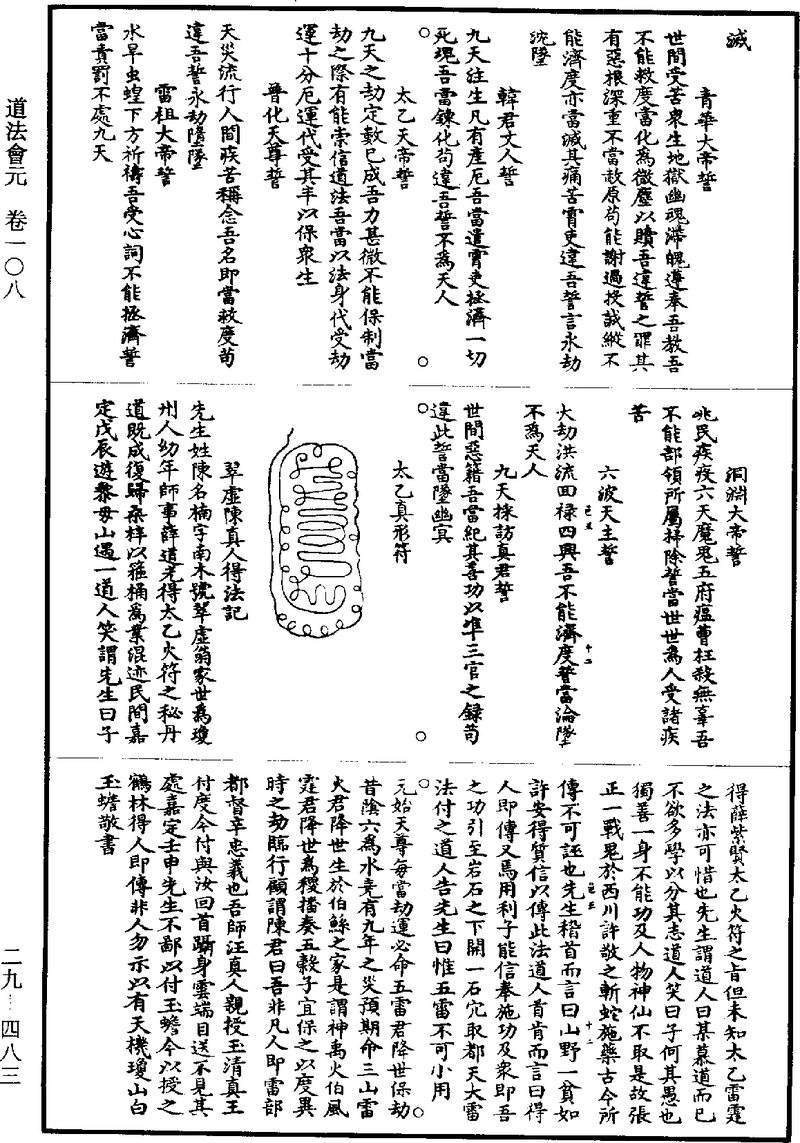 道法會元　卷一〇八
滅
青華大帝誓
世間受苦衆生地獄幽魂滯魄遵奉吾教吾
不能救度當化為微塵以贖吾違誓之罪其
有惡根深重不當赦原苟能謝過投誠縱不
能濟度亦當滅其痛苦霄吏違吾誓言永劫
沈墜
韓君丈人誓
九天往生凡有產厄吾當遣霄吏拯濟一切
死魂吾當鍊化苟違吾誓不為天人
太乙天帝誓
九天之劫定數已成吾力甚微不能保制當
劫之際有能崇信道法吾當以法身代受劫
運十分厄運代受其半以保衆生
普化天尊誓
天災流行人間疾苦稱念吾名即當救度苟
違吾誓永劫隨墜
雷祖大帝誓
水旱虫蝗下方祈禱吾受心詞不能拯濟誓
當責罰不處九天
洞淵大帝誓
兆民疾疫六天魔鬼五府瘟曹枉殺無辜吾
不能部領所屬掃除誓當世世為人受諸疾
苦
六波天主誓
大劫洪流回祿四興吾不能濟度誓當淪墜
不為天人
九天採訪真君誓
世間惡籍吾當紀其善功以準三官之錄苟
違此誓當墜幽冥
太乙真形符
翠虛陳真人得法記
先生姓陳名楠字南木號翠虛翁家世為瓊
州人幼年師事薛道光得太乙火符之秘丹
道既成復歸桑梓以箍桶為業混迹民間嘉
定戊辰遊黎母山遇一道人笑謂先生曰子
得薛紫賢太乙火符之旨但未知太乙雷霆
之法亦可惜也先生謂道人曰某慕道而已
不欲多學以分其志道人笑曰子何其愚也
獨善一身不能功及人物神仙不取是故張
正一戰鬼於西川許敬之斬蛇施藥古今所
傳不可誣也先生稽首而言曰山野一貧如
許安得質信以傳此法道人首肯而言曰得
人即傳又焉用利子能信奉施功及衆即吾
之功引至岩石之下開一石穴取都天大雷
法付之道人告先生曰惟五雷不可小用
元始天尊每當劫運必命五雷君降世保劫
昔陰六為水堯有九年之災預期命三山雷
火君降世生於伯鯀之家是謂神禹火伯風
霆君降世為稷播奏五穀子宜保之以度異
時之劫臨行顧謂陳君曰吾非凡人即雷部
都督辛忠義也吾師汪真人親授玉清真王
付度今付與汝回首躡身雲端目送不見其
處嘉定壬申先生不鄙以付玉蟾今以授之
鶴林得人即傳非人勿示以有天機瓊山白
玉蟾敬書
二九—四八三